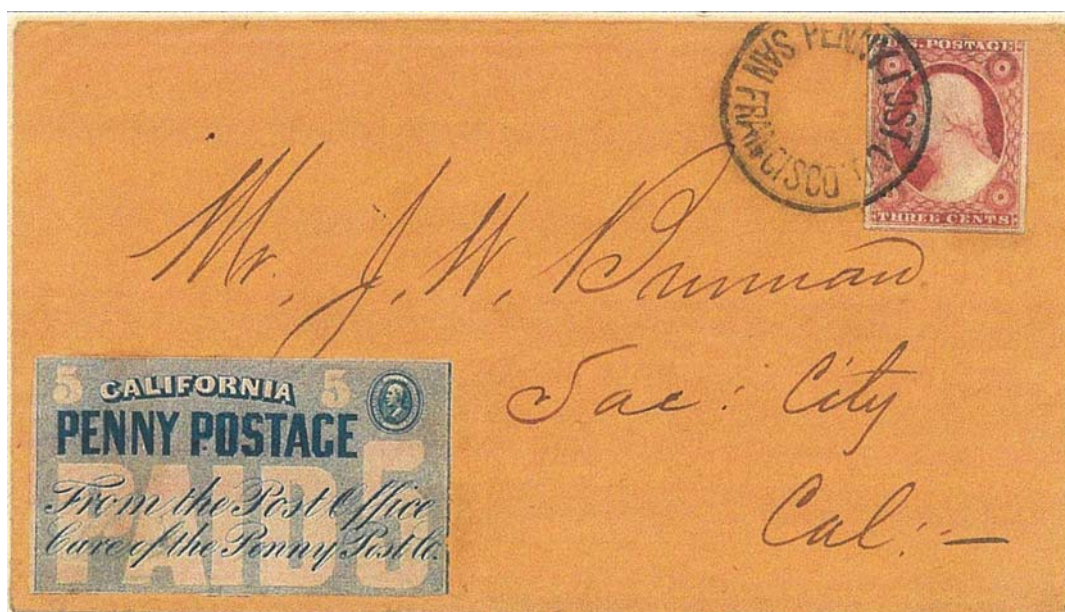 SAN FRANCISCO. PENNY POST Co.
U.S. POSTAGE
THREE CENTS
Mr. J. W.
Sac: City
Cal:-
5 CALIFORNIA 5
PENNY POSTAGE
PAID 5
From the Post Office
Care of the Penny Post Co.